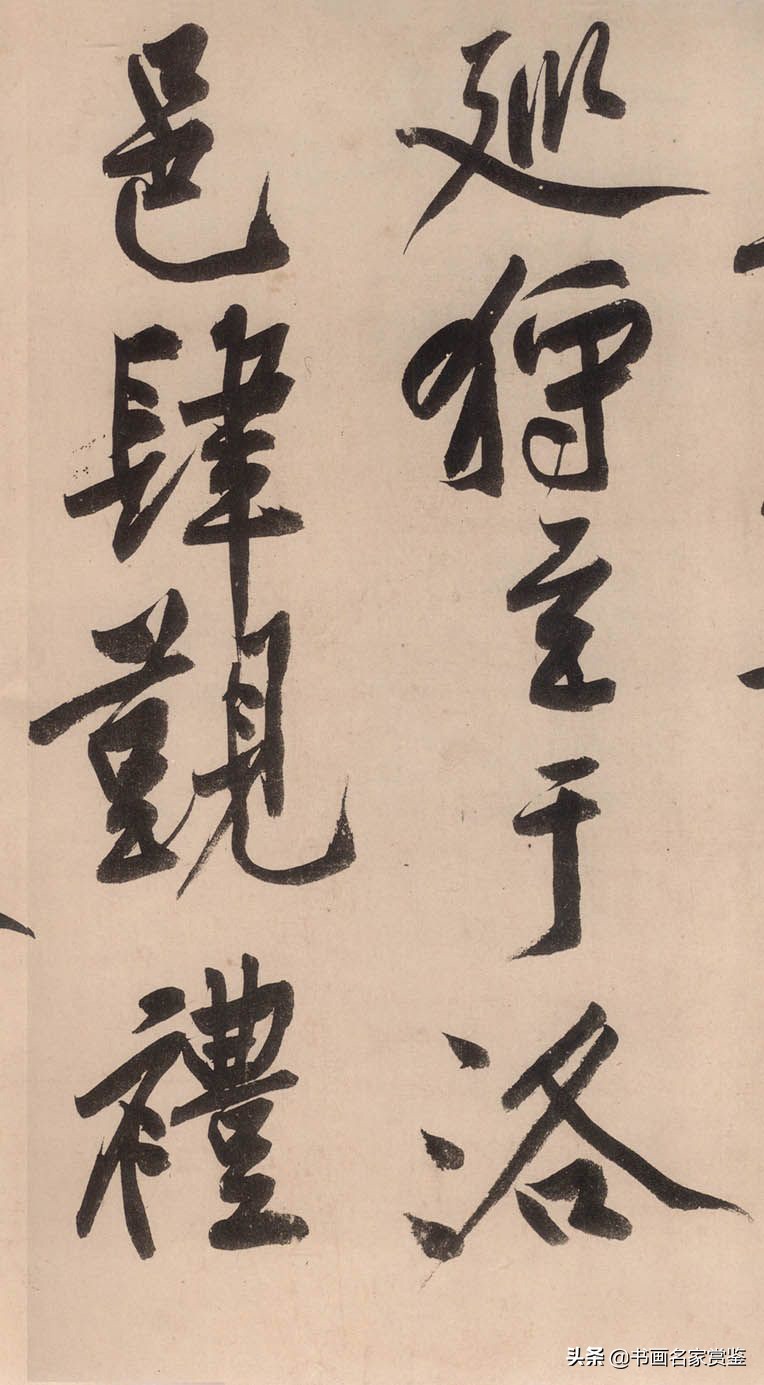 廵狩至于洛
邑肆覲禮
头条 @书画名家赏鉴